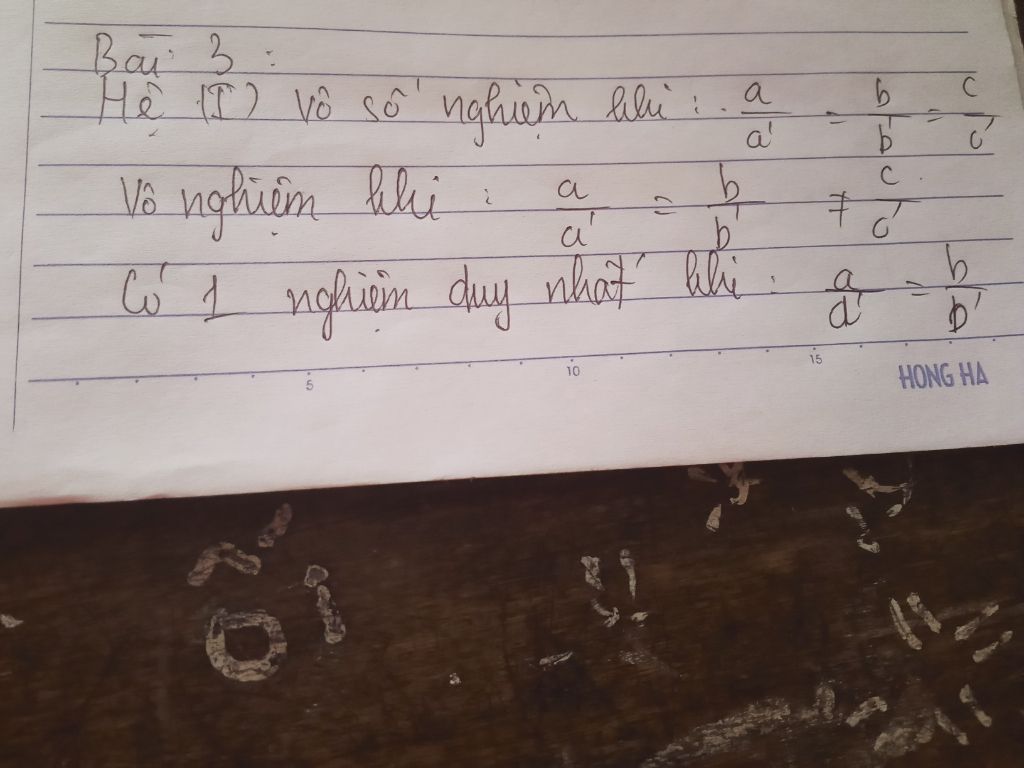 Bài 3 :
Hệ (I) vô số nghiệm khi : a/a' = b/b' = c/c'
Vô nghiệm khi : a/a' = b/b' ≠ c/c'
Có 1 nghiệm duy nhất khi : a/a' = b/b'
5 10 15
HONG HA